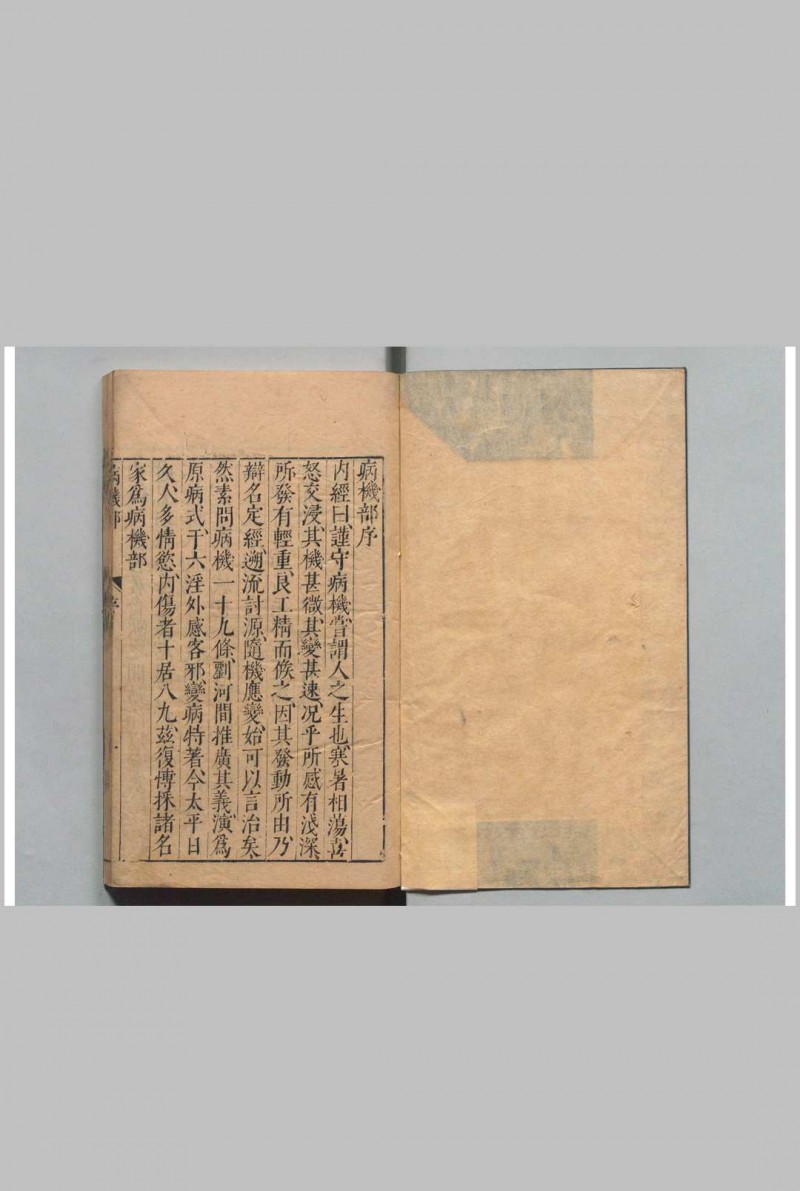 病機部序
内經曰、謹守病機、嘗謂人之生也、寒暑相蕩、喜
怒交浸、其機甚微、其變甚速、况乎所感有淺深、
所發有輕重、良工精而候之、因其發動所由、乃
辯名定經、遡流討源、隨機應變、始可以言治矣、
然素問病機一十九條、劉河間推廣其義、演為
原病式、于六淫外感客邪、變病特著、今太平日
久、人多情慾、内傷者十居八九、茲復博採諸名
家爲病機部
病機部 序